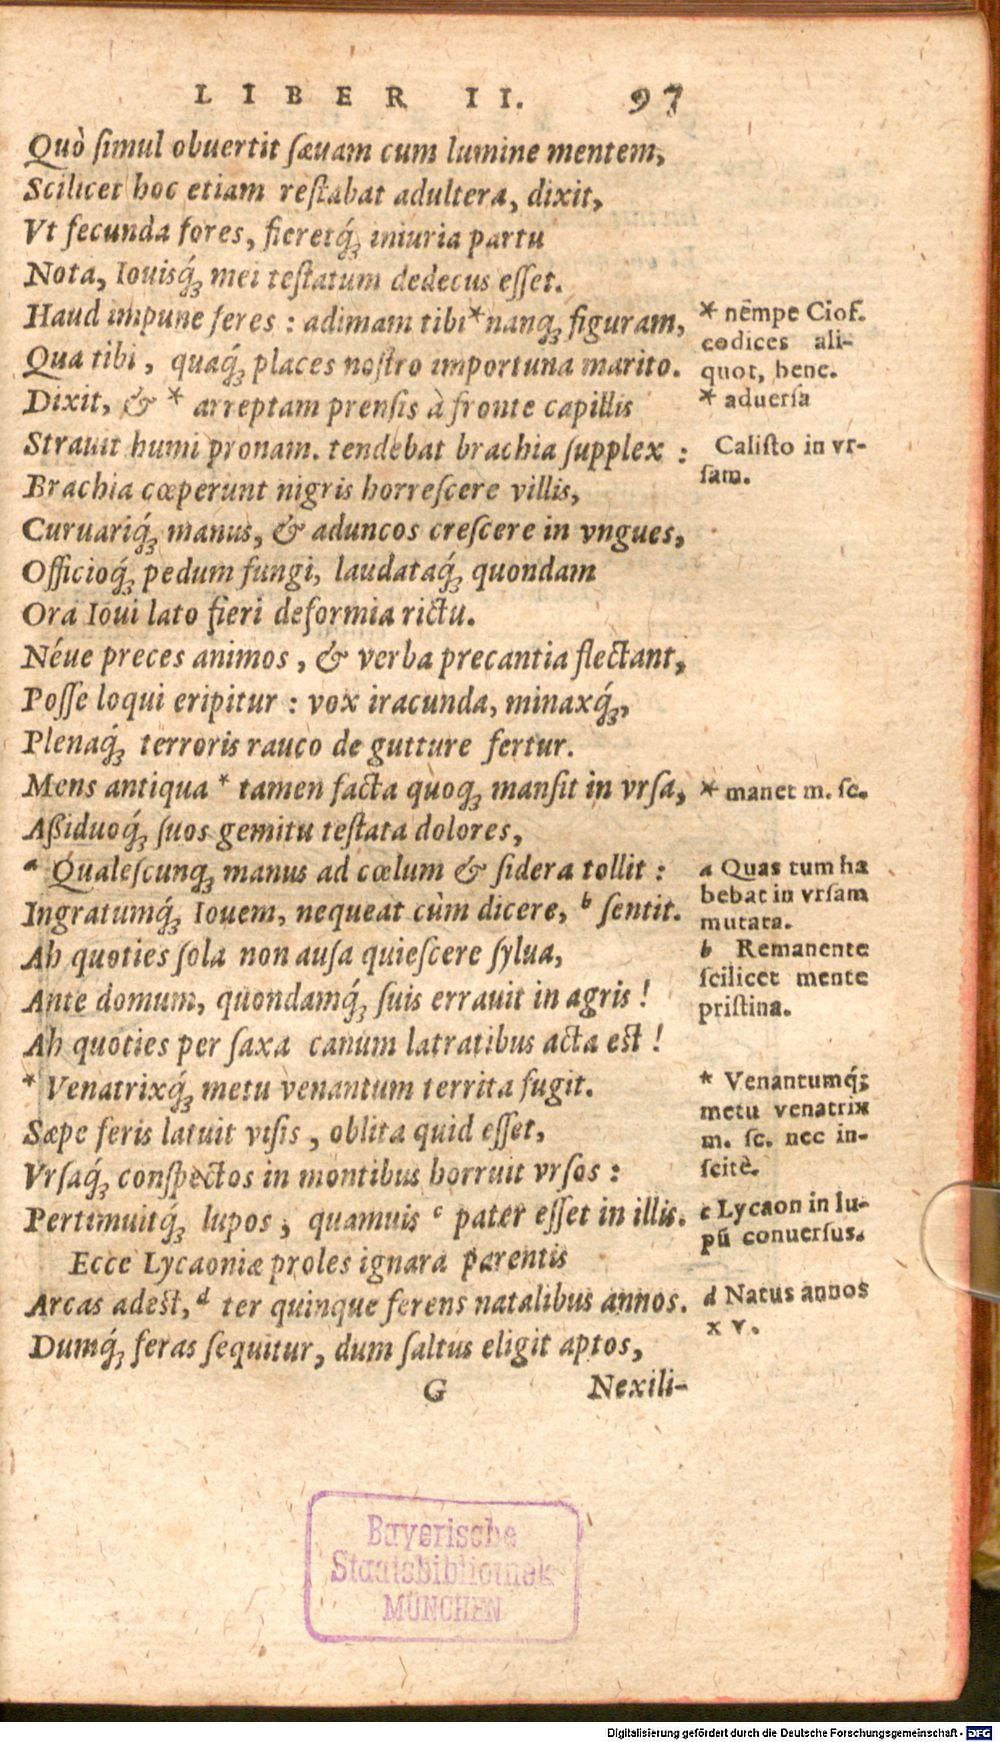 LIBER II. 97
Quò ſimul obuertit ſæuam cum lumine mentem,
Scilicet hoc etiam reſtabat adultera, dixit,
Vt fecunda fores, fieretq́ꝫ iniuria partu
Nota, Iouisq́ꝫ mei teſtatum dedecus eſſet.
Haud impune feres : adimam tibi*nanqꝫ figuram,
Qua tibi, quaq́ꝫ places noſtro importuna marito.
Dixit, & * arreptam prenſis à fronte capillis
Strauit humi pronam. tendebat brachia ſupplex :
Brachia cœperunt nigris horreſcere villis,
Curuariq́ꝫ manus, & aduncos creſcere in vngues,
Officioq́ꝫ pedum fungi, laudataq́ꝫ quondam
Ora Ioui lato fieri deformia rictu.
Néue preces animos, & verba precantia flectant,
Poſſe loqui eripitur : vox iracunda, minaxq́ꝫ,
Plenaq́ꝫ terroris rauco de gutture fertur.
Mens antiqua * tamen facta quoqꝫ manſit in vrſa,
Aßiduoq́ꝫ ſuos gemitu teſtata dolores,
a Qualeſcunqꝫ manus ad cœlum & ſidera tollit :
Ingratumq́ꝫ Iouem, nequeat cùm dicere, b ſentit.
Ah quoties ſola non auſa quieſcere ſylua,
Ante domum, quondamq́ꝫ ſuis errauit in agris !
Ah quoties per ſaxa canum latratibus acta eſt !
* Venatrixq́ꝫ metu venantum territa fugit.
Sæpe feris latuit viſis, oblita quid eſſet,
Vrſaq́ꝫ conſpectos in montibus horruit vrſos :
Pertimuitq́ꝫ lupos, quamuis c pater eſſet in illis.
Ecce Lycaoniæ proles ignara parentis
Arcas adeſt, d ter quinque ferens natalibus annos.
Dumq́ꝫ feras ſequitur, dum ſaltus eligit aptos,
G Nexili-
* nēmpe Ciof.
codices ali-
quot, bene.
* aduerſa
Caliſto in vr-
ſam.
* manet m. ſc.
a Quas tum ha
bebat in vrſam
mutata.
b Remanente
ſcilicet mente
priſtina.
* Venantumq́ꝫ
metu venatrix
m. ſc. nec in-
ſcitè.
c Lycaon in lu-
pū conuerſus.
d Natus annos
x v.
Bayerische
Staatsbibliothek
MÜNCHEN
Digitalisierung gefördert durch die Deutsche Forschungsgemeinschaft - DFG